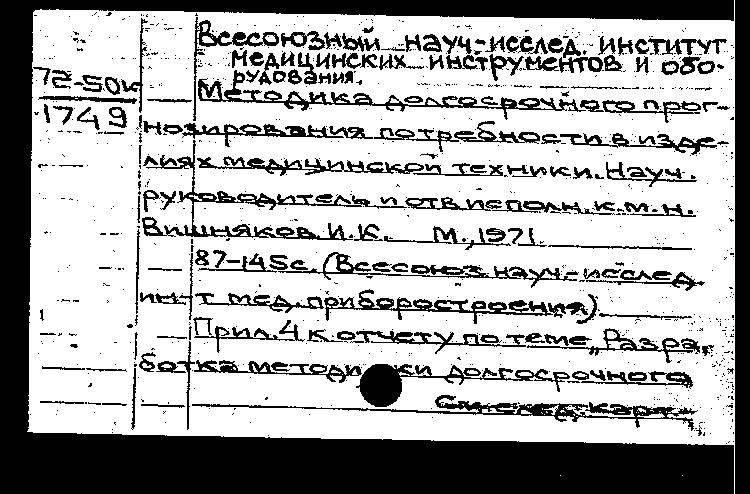 Всесоюзный науч.-исслед. институт
медицинских инструментов и обо-
рудования.
72-50к
1749
Методика долгосрочного прог-
нозирования потребности в изде-
лиях медицинской техники. Науч.
руководитель и отв. исполн. к.м.н.
Вишняков И.К. М., 1971.
87-145с. (Всесоюз. науч.-исслед.
ин-т мед. приборостроения)
Прил. 4 к отчету по теме „Разра-
ботка методики долгосрочного
См. след. карт.